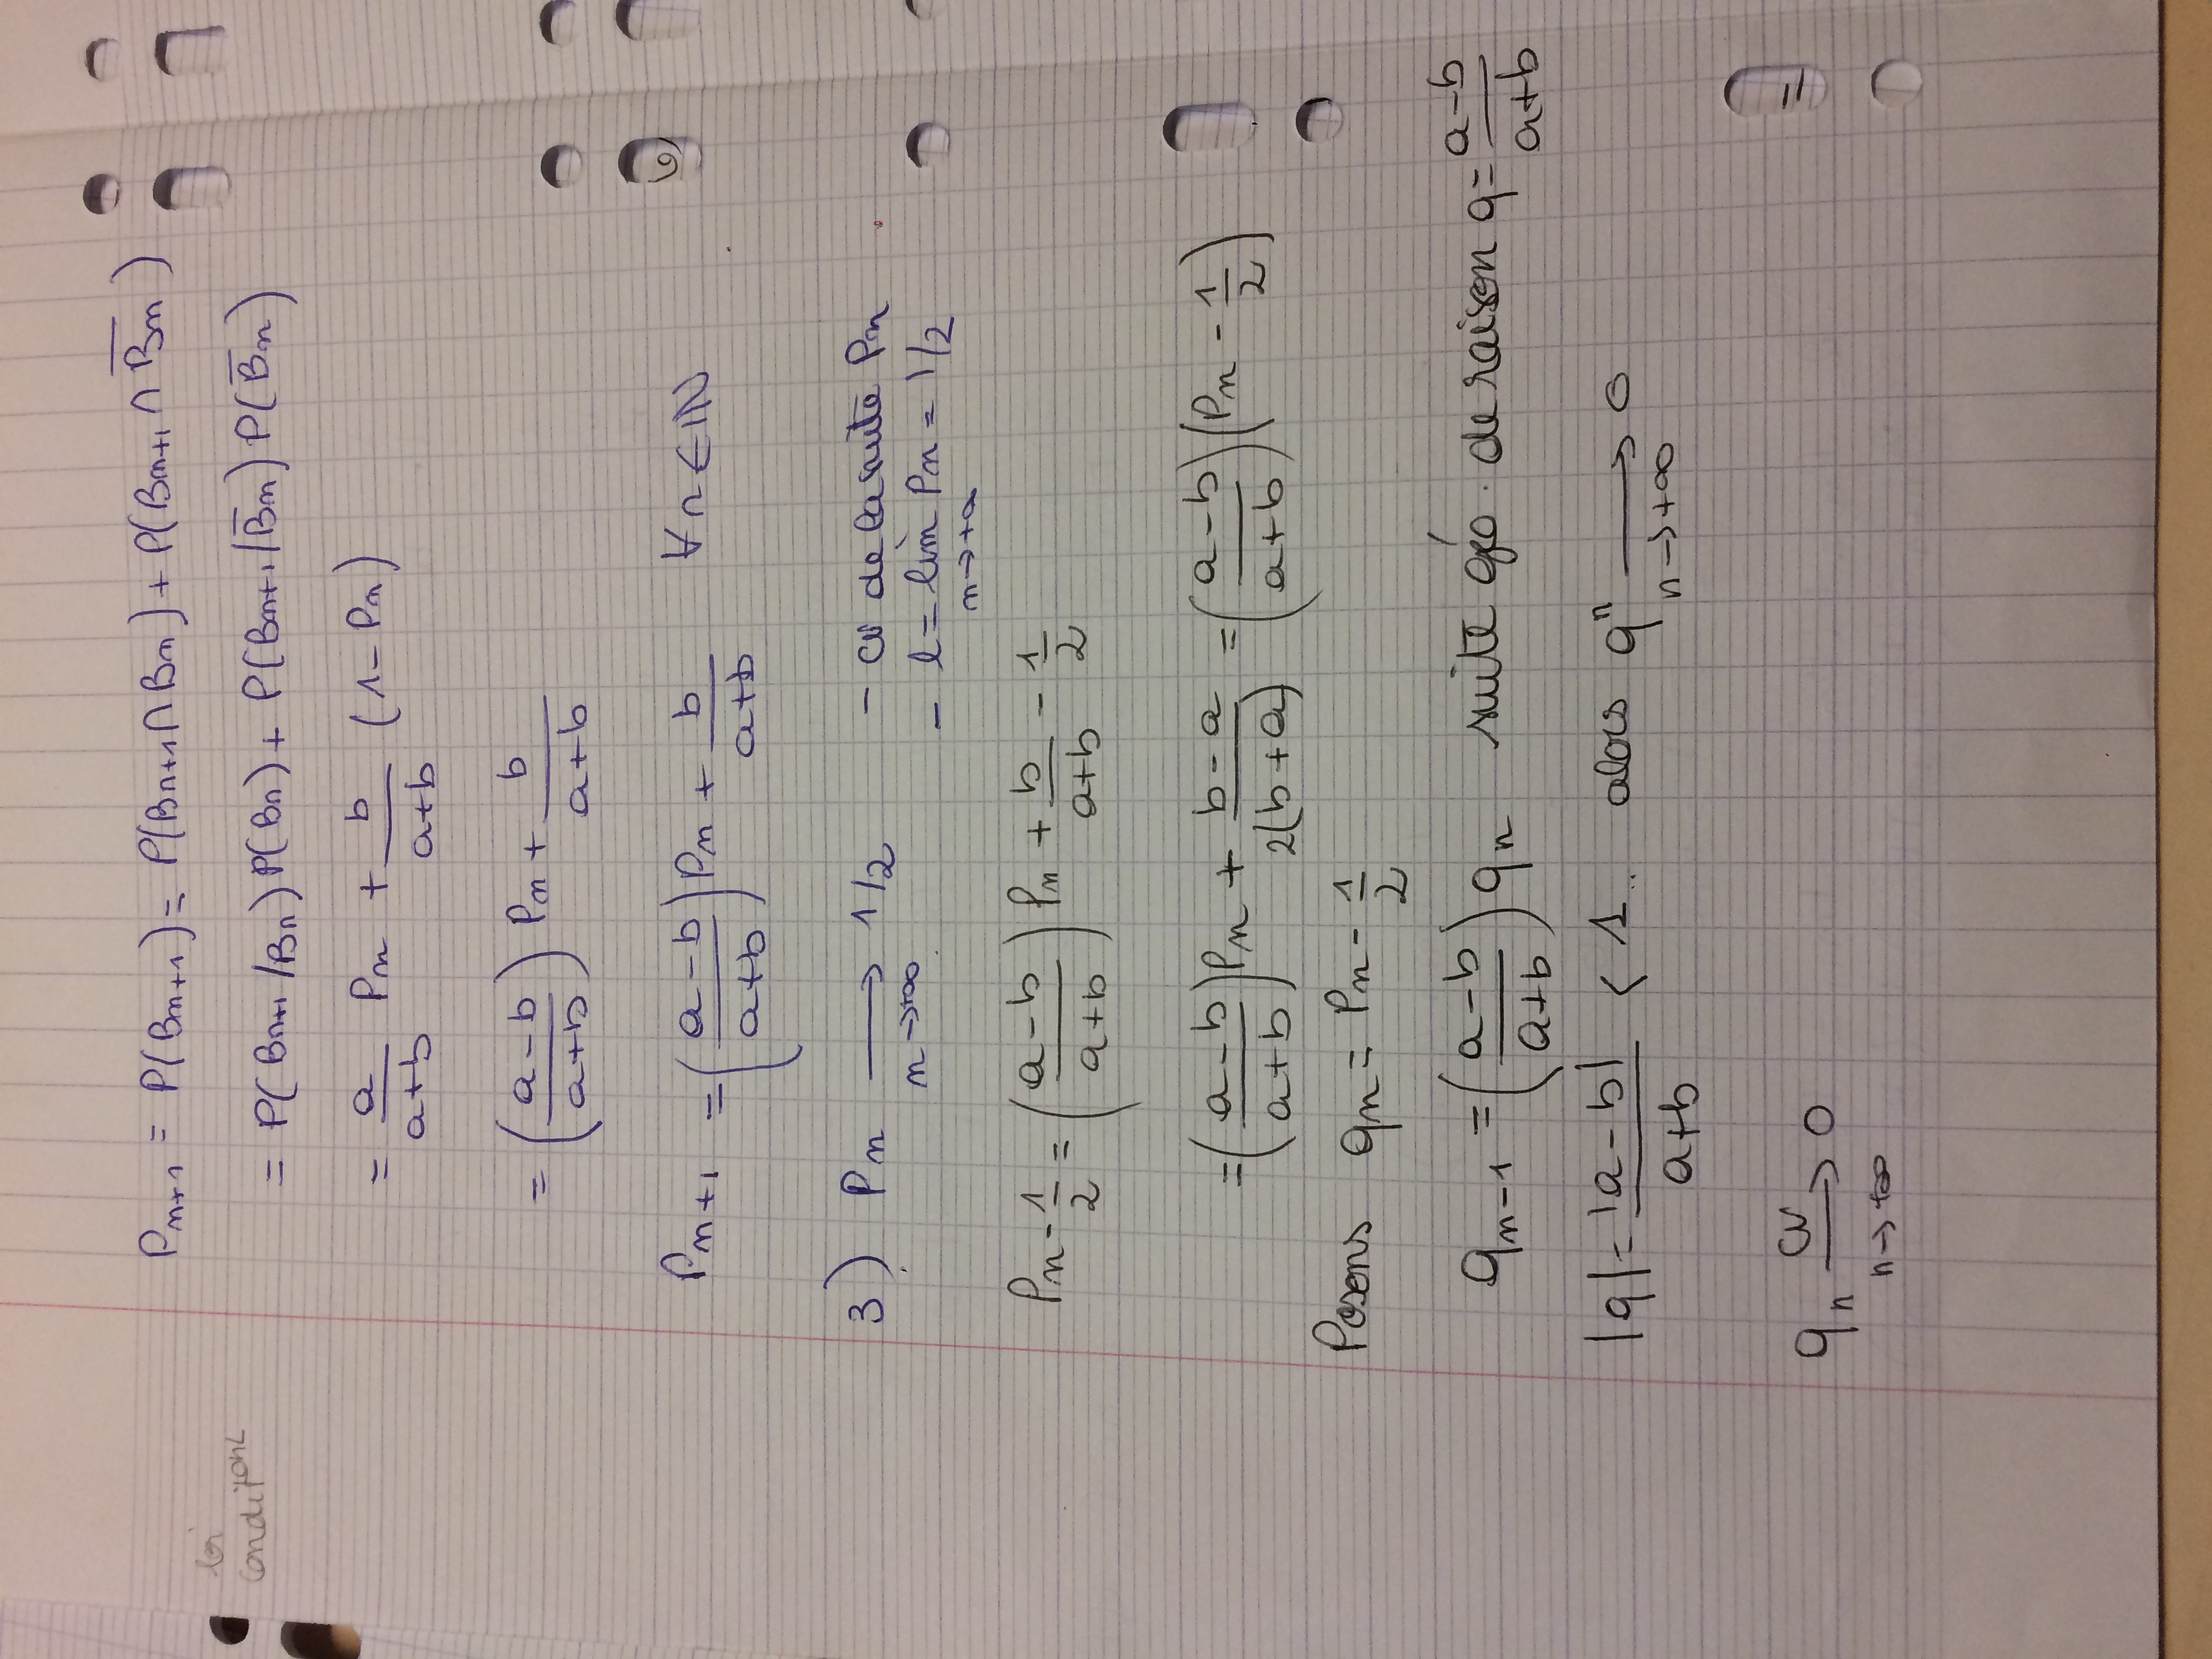 P_{n+1} = P(B_{n+1}) = P(B_{n+1} ∩ B_n) + P(B_{n+1} ∩ \overline{B_n})
loi
condit^{ionL}
= P(B_{n+1} / B_n) P(B_n) + P(B_{n+1} / \overline{B}_n) P(\overline{B}_n)
= \frac{a}{a+b} P_n + \frac{b}{a+b} (1 - P_n)
= (\frac{a-b}{a+b}) P_n + \frac{b}{a+b}
P_{n+1} = (\frac{a-b}{a+b}) P_n + \frac{b}{a+b} ∀ n ∈ ℕ
3) P_n ⟶_{n→+∞} 1/2 - cv de la suite P_n
- l = lim_{n→+∞} P_n = 1/2
P_n - \frac{1}{2} = (\frac{a-b}{a+b}) P_n + \frac{b}{a+b} - \frac{1}{2}
= (\frac{a-b}{a+b}) P_n + \frac{b-a}{2(b+a)} = (\frac{a-b}{a+b}) (P_n - \frac{1}{2})
Posons q_n = P_n - \frac{1}{2}
q_{n-1} = (\frac{a-b}{a+b}) q_n suite géo. de raison q = \frac{a-b}{a+b}
|q| = \frac{|a-b|}{a+b} < 1.. alors q^n ⟶_{n→+∞} 0
q_n ⟶^{cv}_{n→+∞} 0